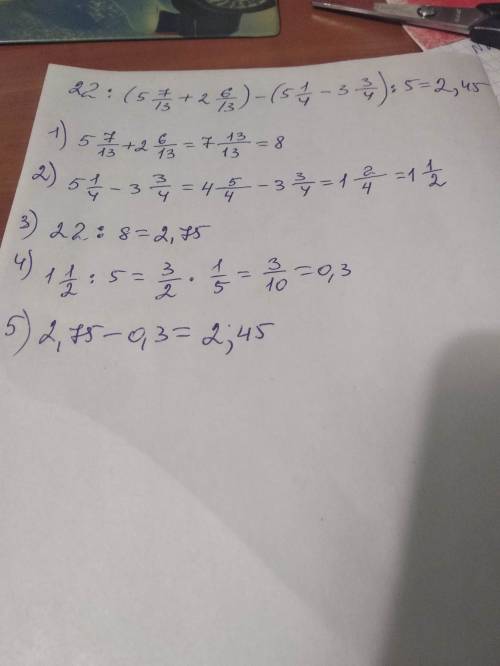 22 : (5 7/13 + 2 6/13) − (5 1/4 − 3 3/4) : 5 = 2,45
1) 5 7/13 + 2 6/13 = 7 13/13 = 8
2) 5 1/4 − 3 3/4 = 4 5/4 − 3 3/4 = 1 2/4 = 1 1/2
3) 22 : 8 = 2,75
4) 1 1/2 : 5 = 3/2 · 1/5 = 3/10 = 0,3
5) 2,75 − 0,3 = 2,45